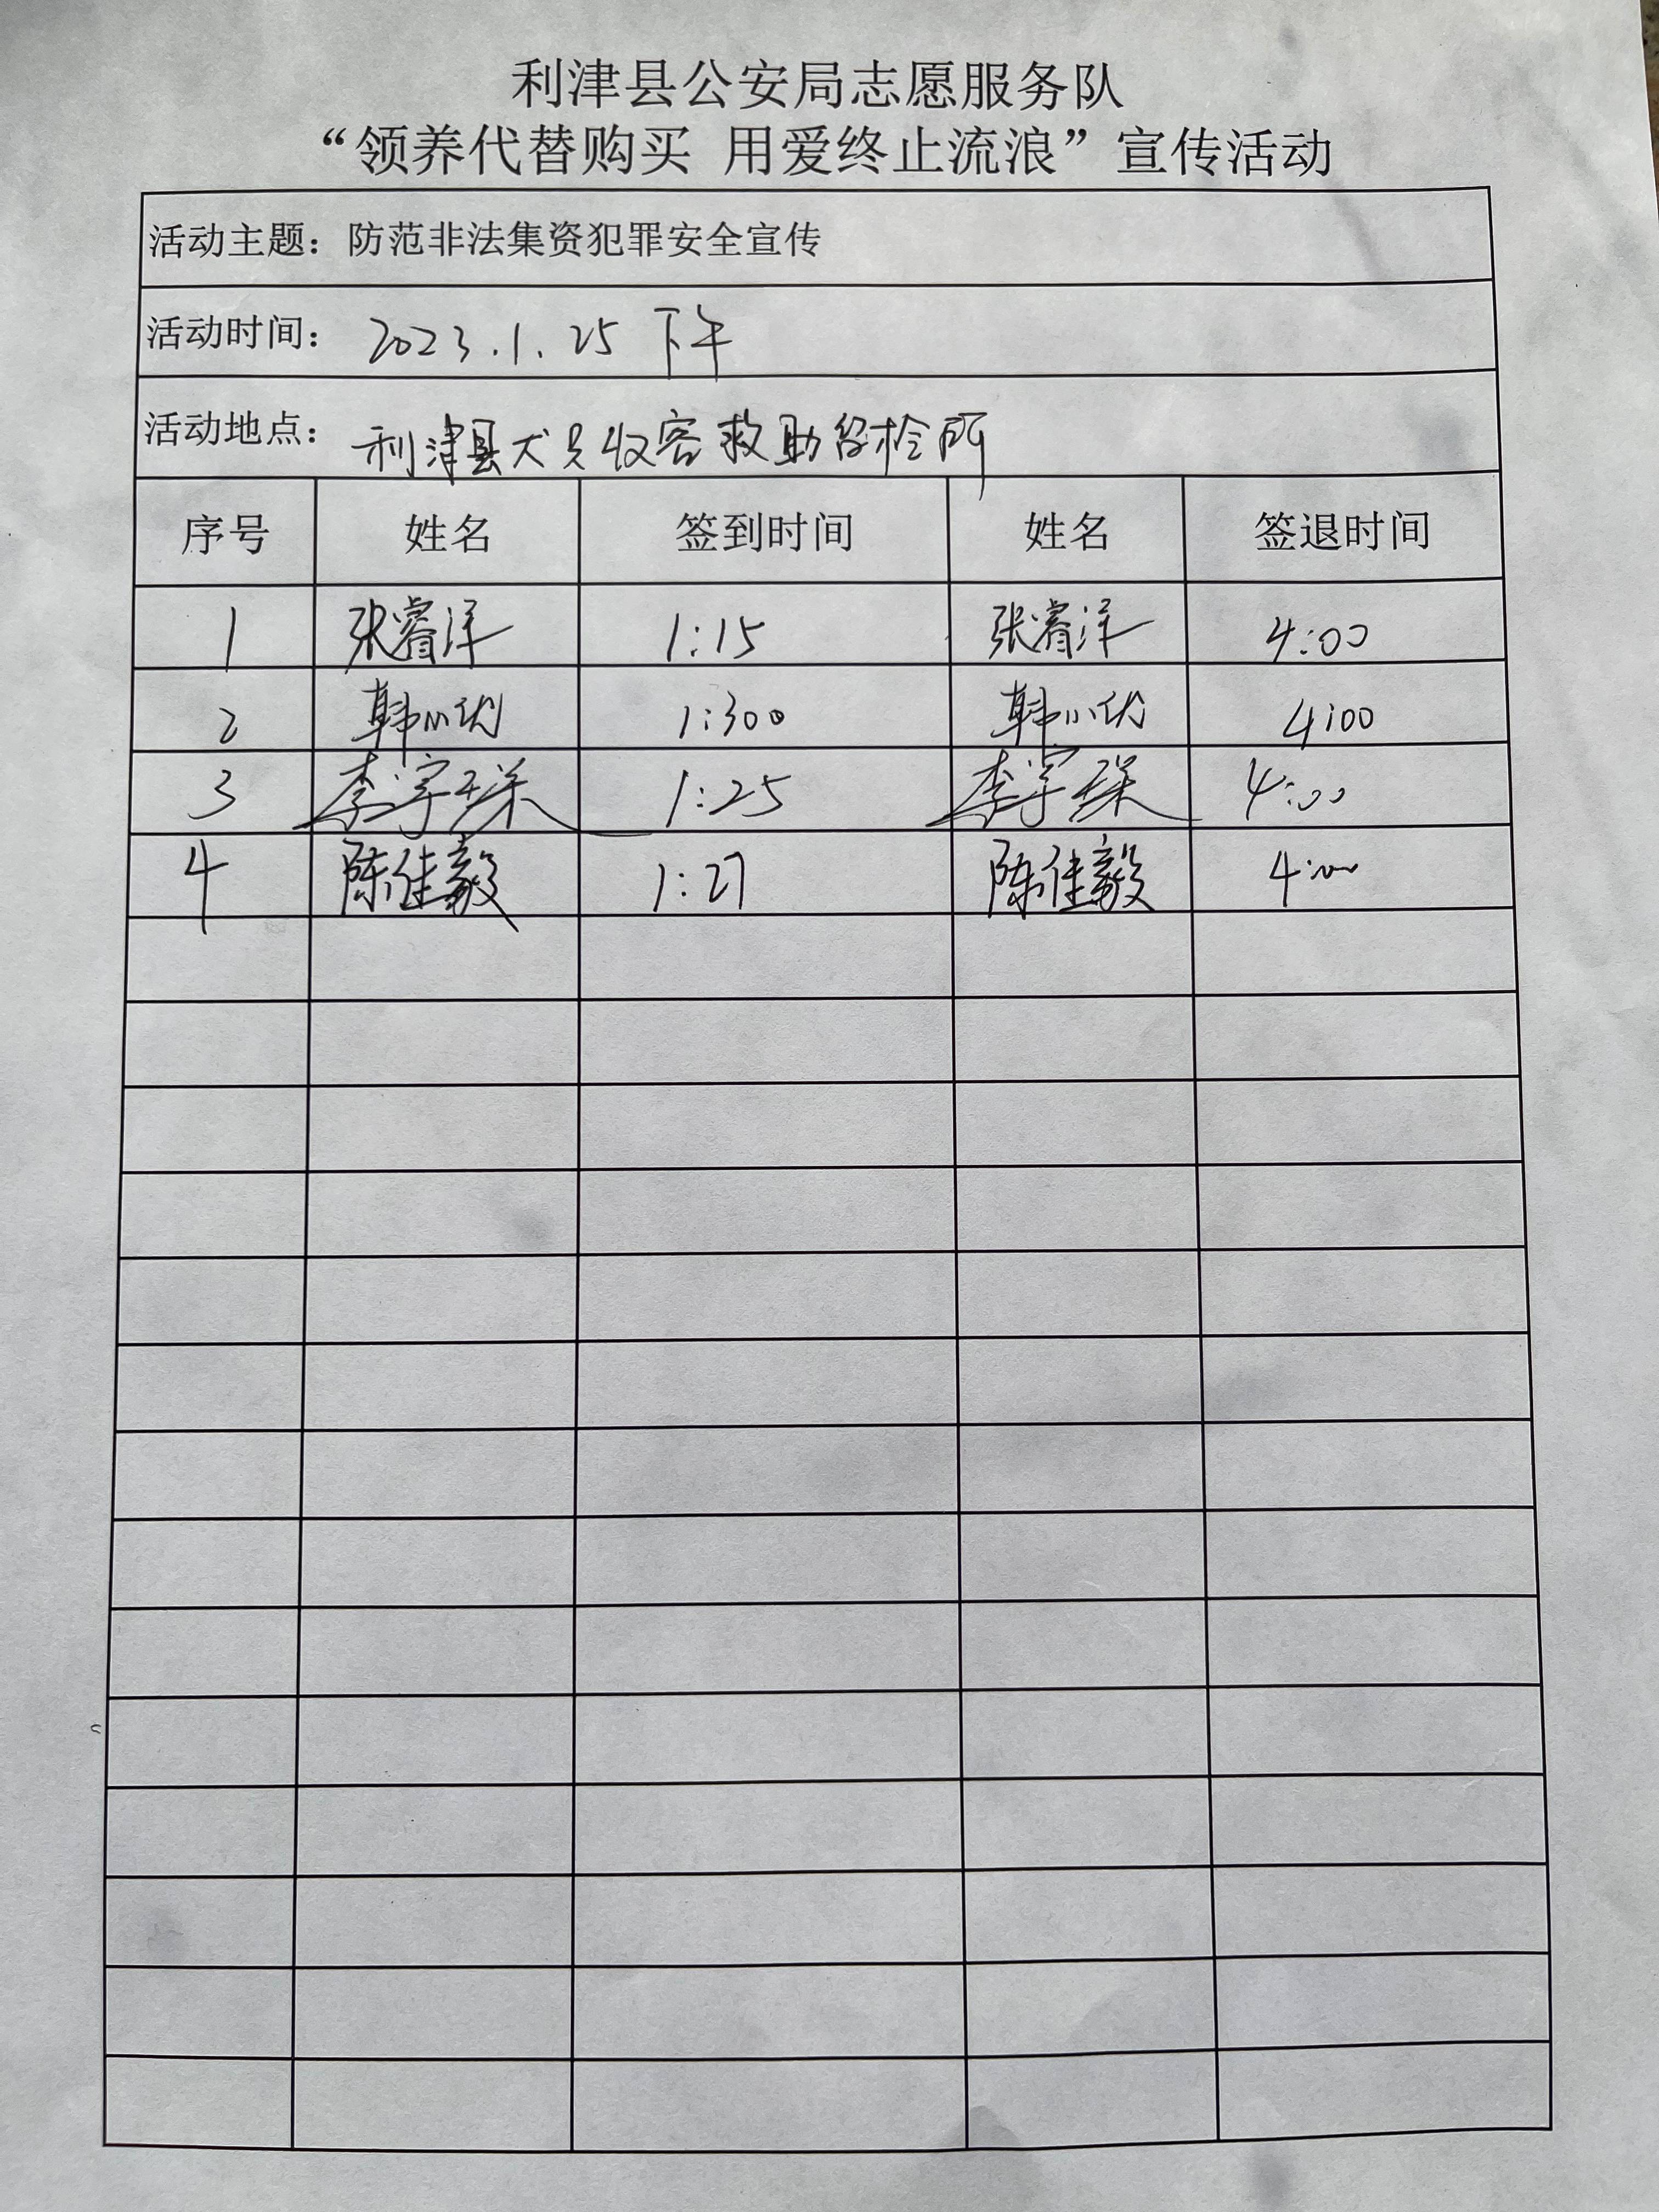 利津县公安局志愿服务队
“领养代替购买 用爱终止流浪”宣传活动
活动主题：防范非法集资犯罪安全宣传
活动时间：2023.1.25 下午
活动地点：利津县犬只收容救助留检所
序号 姓名 签到时间 姓名 签退时间
1 张睿洋 1:15 张睿洋 4:00
2 韩小优 1:300 韩小优 4:00
3 李宇琛 1:25 李宇琛 4:00
4 陈佳毅 1:27 陈佳毅 4:00